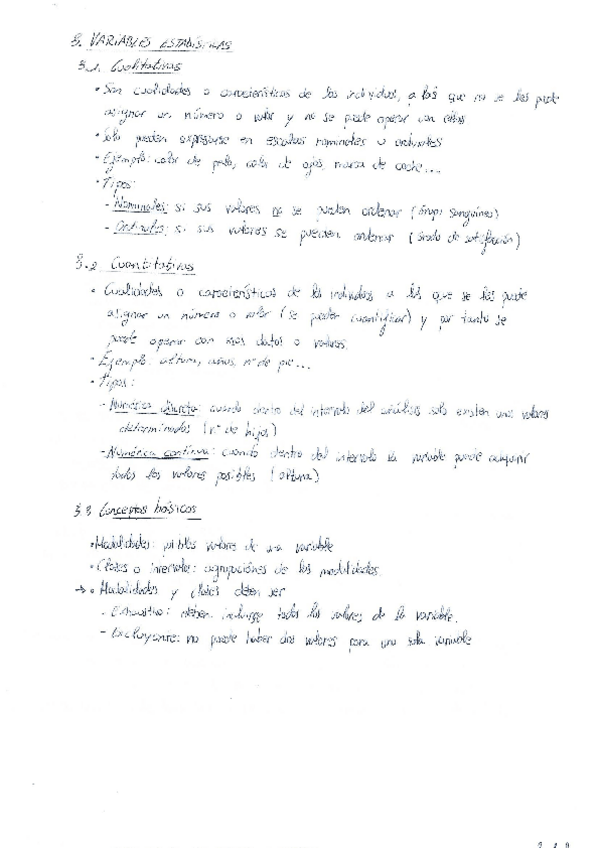 3. VARIABLES ESTADÍSTICAS
3.1. Cualitativas
• Son cualidades o características de los individuos, a las que no se les puede
asignar un número o valor y no se puede operar con ellas
• Solo pueden expresarse en escalas nominales u ordinales
• Ejemplo: color de pelo, color de ojos, marca de coche...
• Tipos:
- Nominales: si sus valores no se pueden ordenar (Grupo sanguíneo)
- Ordinales: si sus valores se pueden ordenar (Grado de satisfacción)
3.2 Cuantitativas
• Cualidades o características de los individuos a las que se les puede
asignar un número o valor (se pueden cuantificar) y por tanto se
puede operar con esos datos o valores.
• Ejemplo: altura, nº de pie...
• Tipos:
- Numérica discreta: cuando dentro del intervalo del análisis solo existen unos valores
determinados (nº de hijos)
- Numérica continua: cuando dentro del intervalo la variable puede adquirir
todos los valores posibles (altura)
3.3 Conceptos básicos
• Modalidades: posibles valores de una variable
• Clases o intervalos: agrupaciones de las modalidades.
→ • Modalidades y clases deben ser
- Exhaustivo: deben incluirse todos los valores de la variable.
- Excluyente: no puede haber dos valores para una sola variable